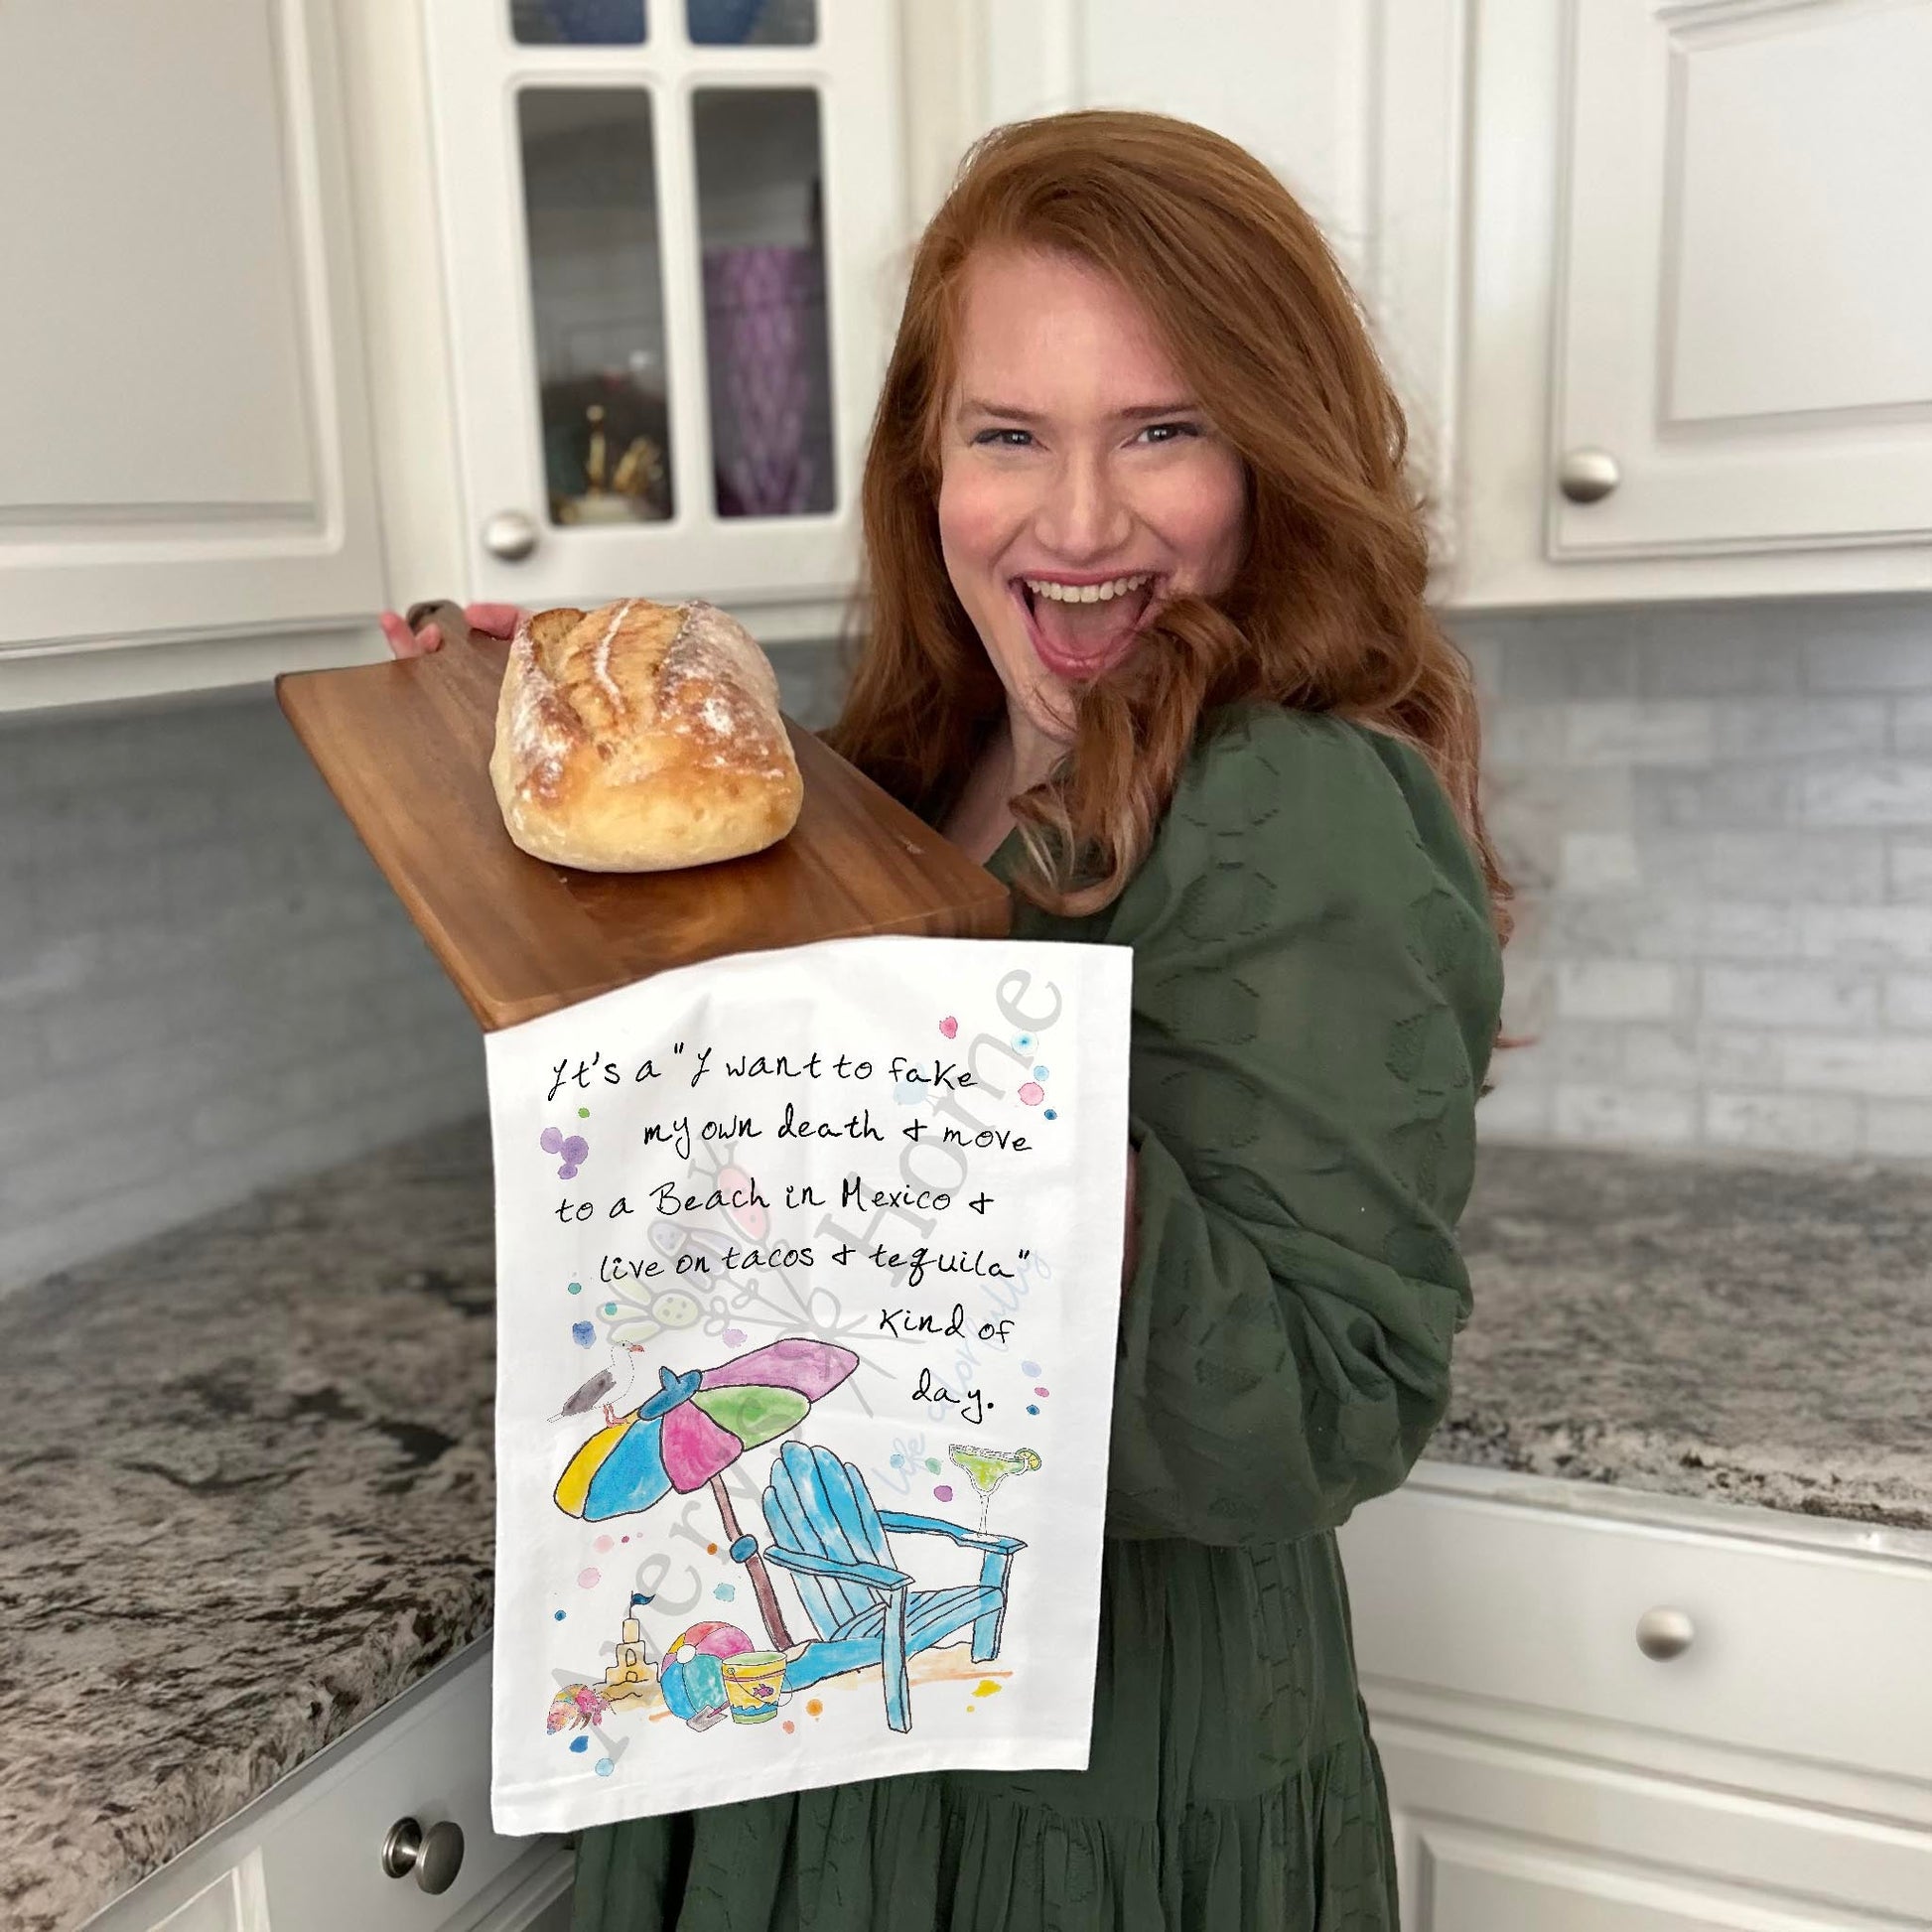 It's a "I want to fake
my own death + move
to a Beach in Mexico +
live on tacos + tequila"
Kind of
day.
Averys Home
life adorably